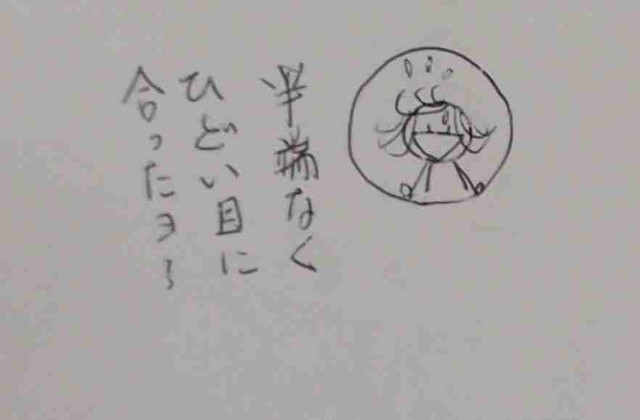 半端なく
ひどい目に
合ったヨ〜